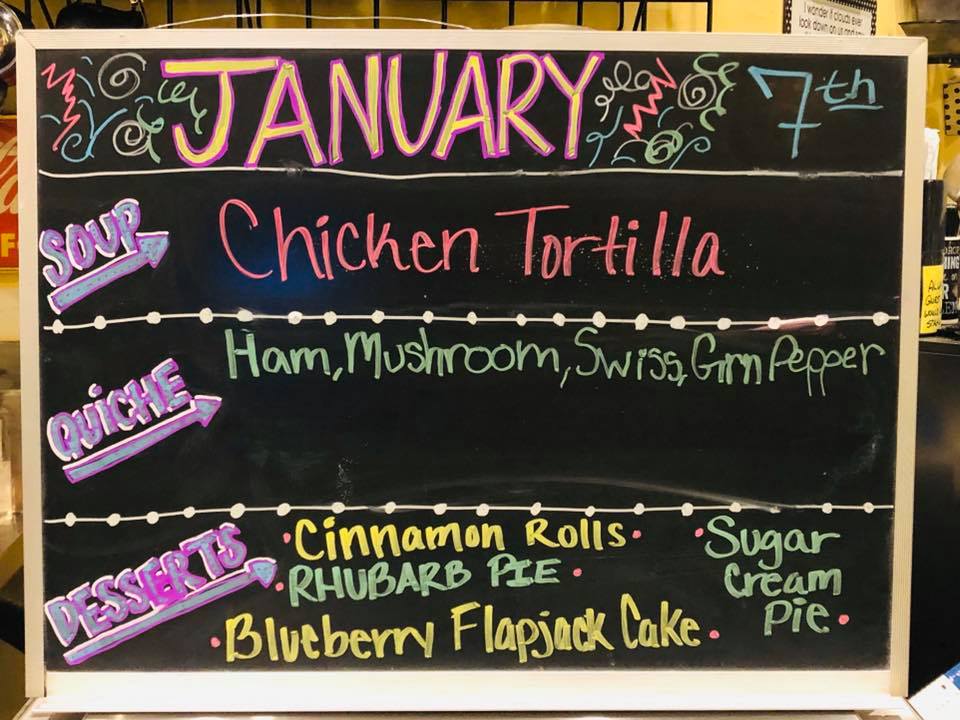 I wonder if clouds ever
look down on us and say
JANUARY 7th
SOUP
Chicken Tortilla
QUICHE
Ham, Mushroom, Swiss, Grn Pepper
DESSERTS
Cinnamon Rolls
RHUBARB PIE
Blueberry Flapjack Cake
Sugar
Cream
Pie